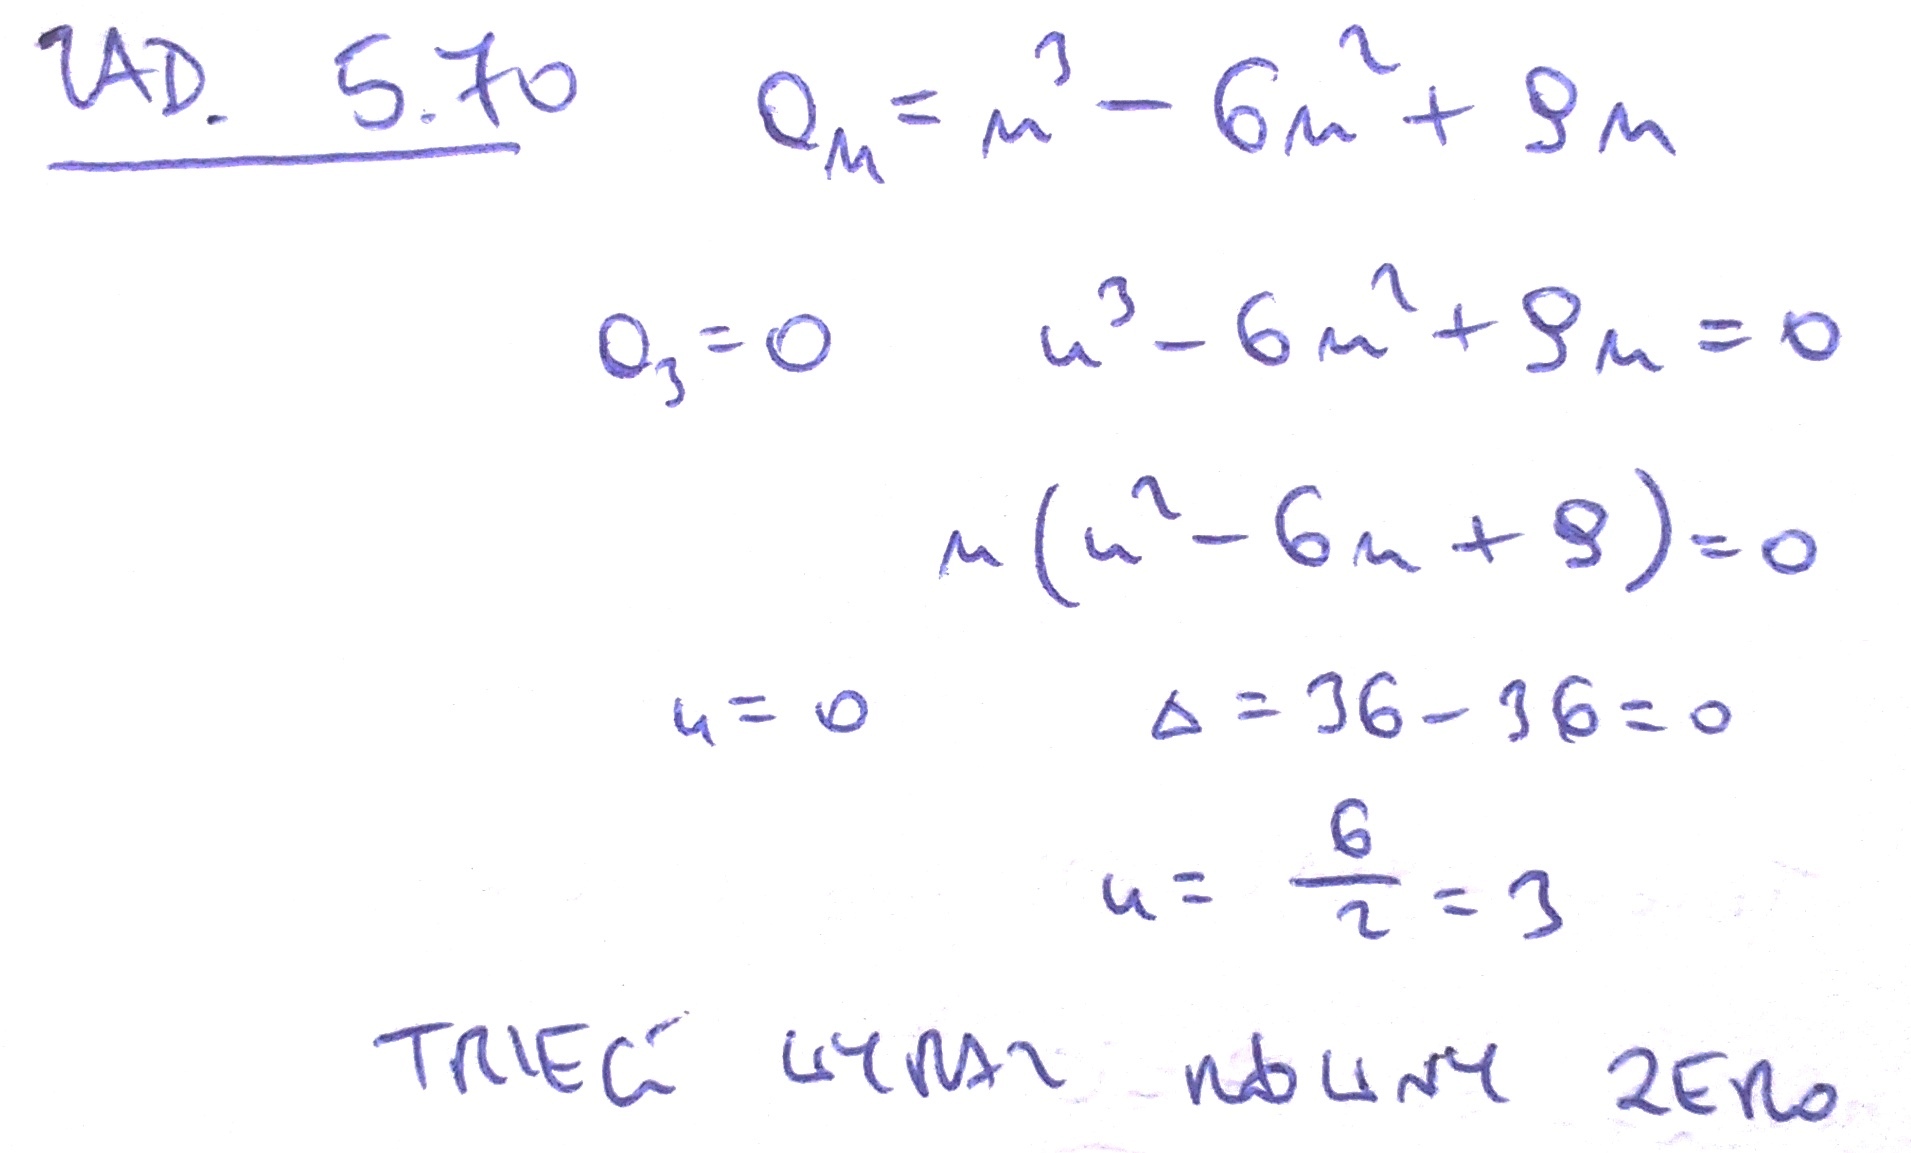 ZAD. 5.70 aₙ = n³ - 6n² + 9n
a₃ = 0 n³ - 6n² + 9n = 0
n(n² - 6n + 9) = 0
n = 0 Δ = 36 - 36 = 0
n = 6/2 = 3
TRZECI WYRAZ RÓWNY ZERO